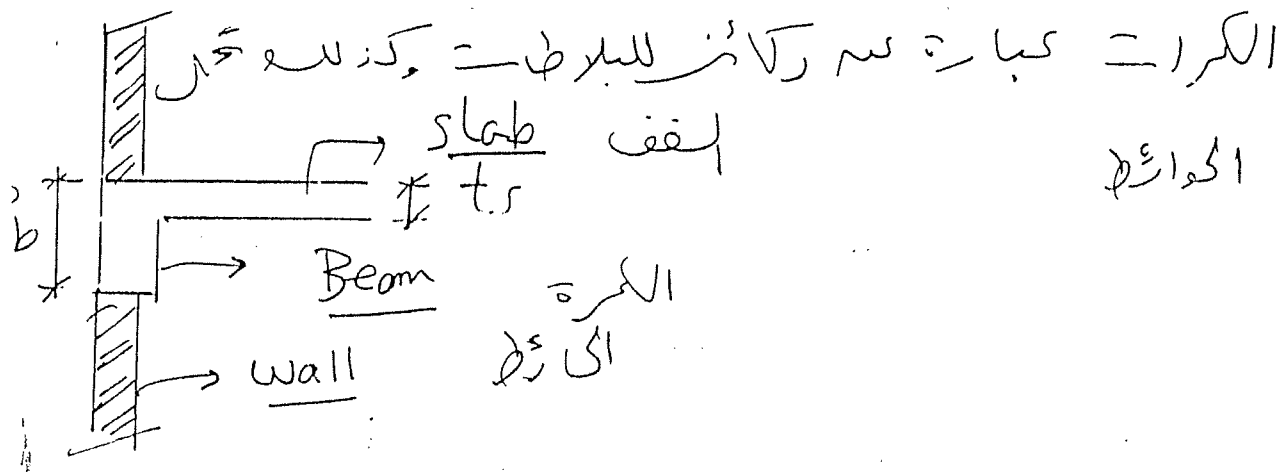 الكمرات عبارة عن ركائز للبلاطات وكذلك تحمل
الحوائط
slab السقف
ts
b
Beam الكمرة
wall الحائط